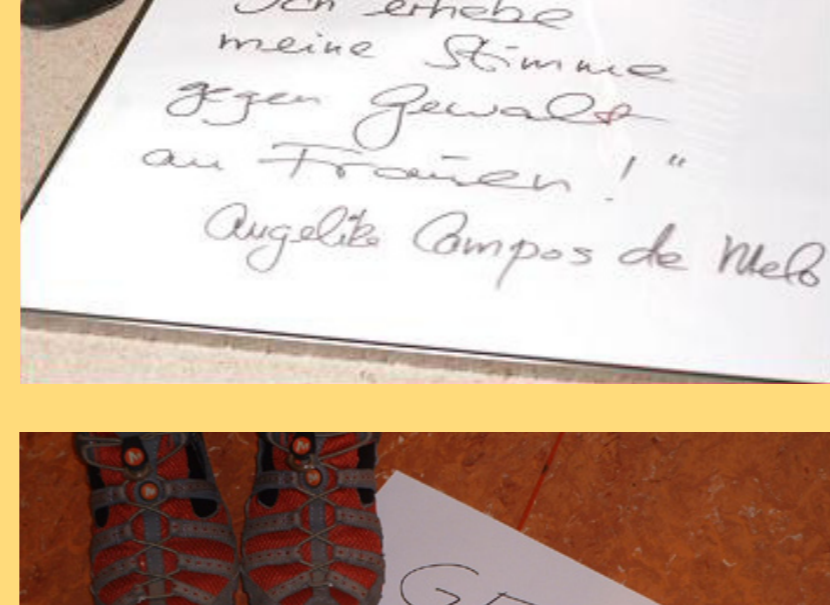 Ich erhebe
meine Stimme
gegen Gewalt
an Frauen!"
Angelika Campos de Melo
GE